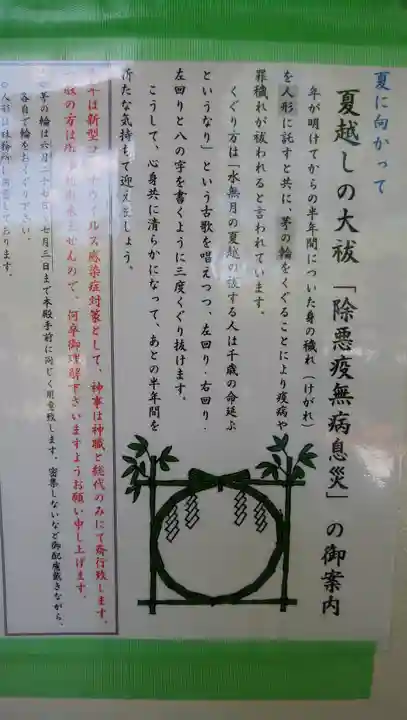 夏に向かって
夏越しの大祓 「除悪疫無病息災」の御案内
年が明けてからの半年間についた身の穢れ（けがれ）
を人形に託すと共に、茅の輪をくぐることにより疫病や
罪穢れが祓われると言われています。
くぐり方は「水無月の夏越の祓する人は千歳の命延ぶ
というなり」という古歌を唱えつつ、左回り・右回り・
左回りと八の字を書くように三度くぐり抜けます。
こうして、心身共に清らかになって、あとの半年間を
新たな気持ちで迎えましょう。
年は新型コロナウイルス感染症対策として、神事は神職と総代のみにて斎行致します。
般の方は席 ませんので、何卒御理解下さいますようお願い申し上げます。
茅の輪は六月二十七日 七月三日まで本殿手前に同じく用意致します。密集しないなど御配慮戴きながら、
各自で輪をおくぐり下さい。
人形は社務所に用意しております。